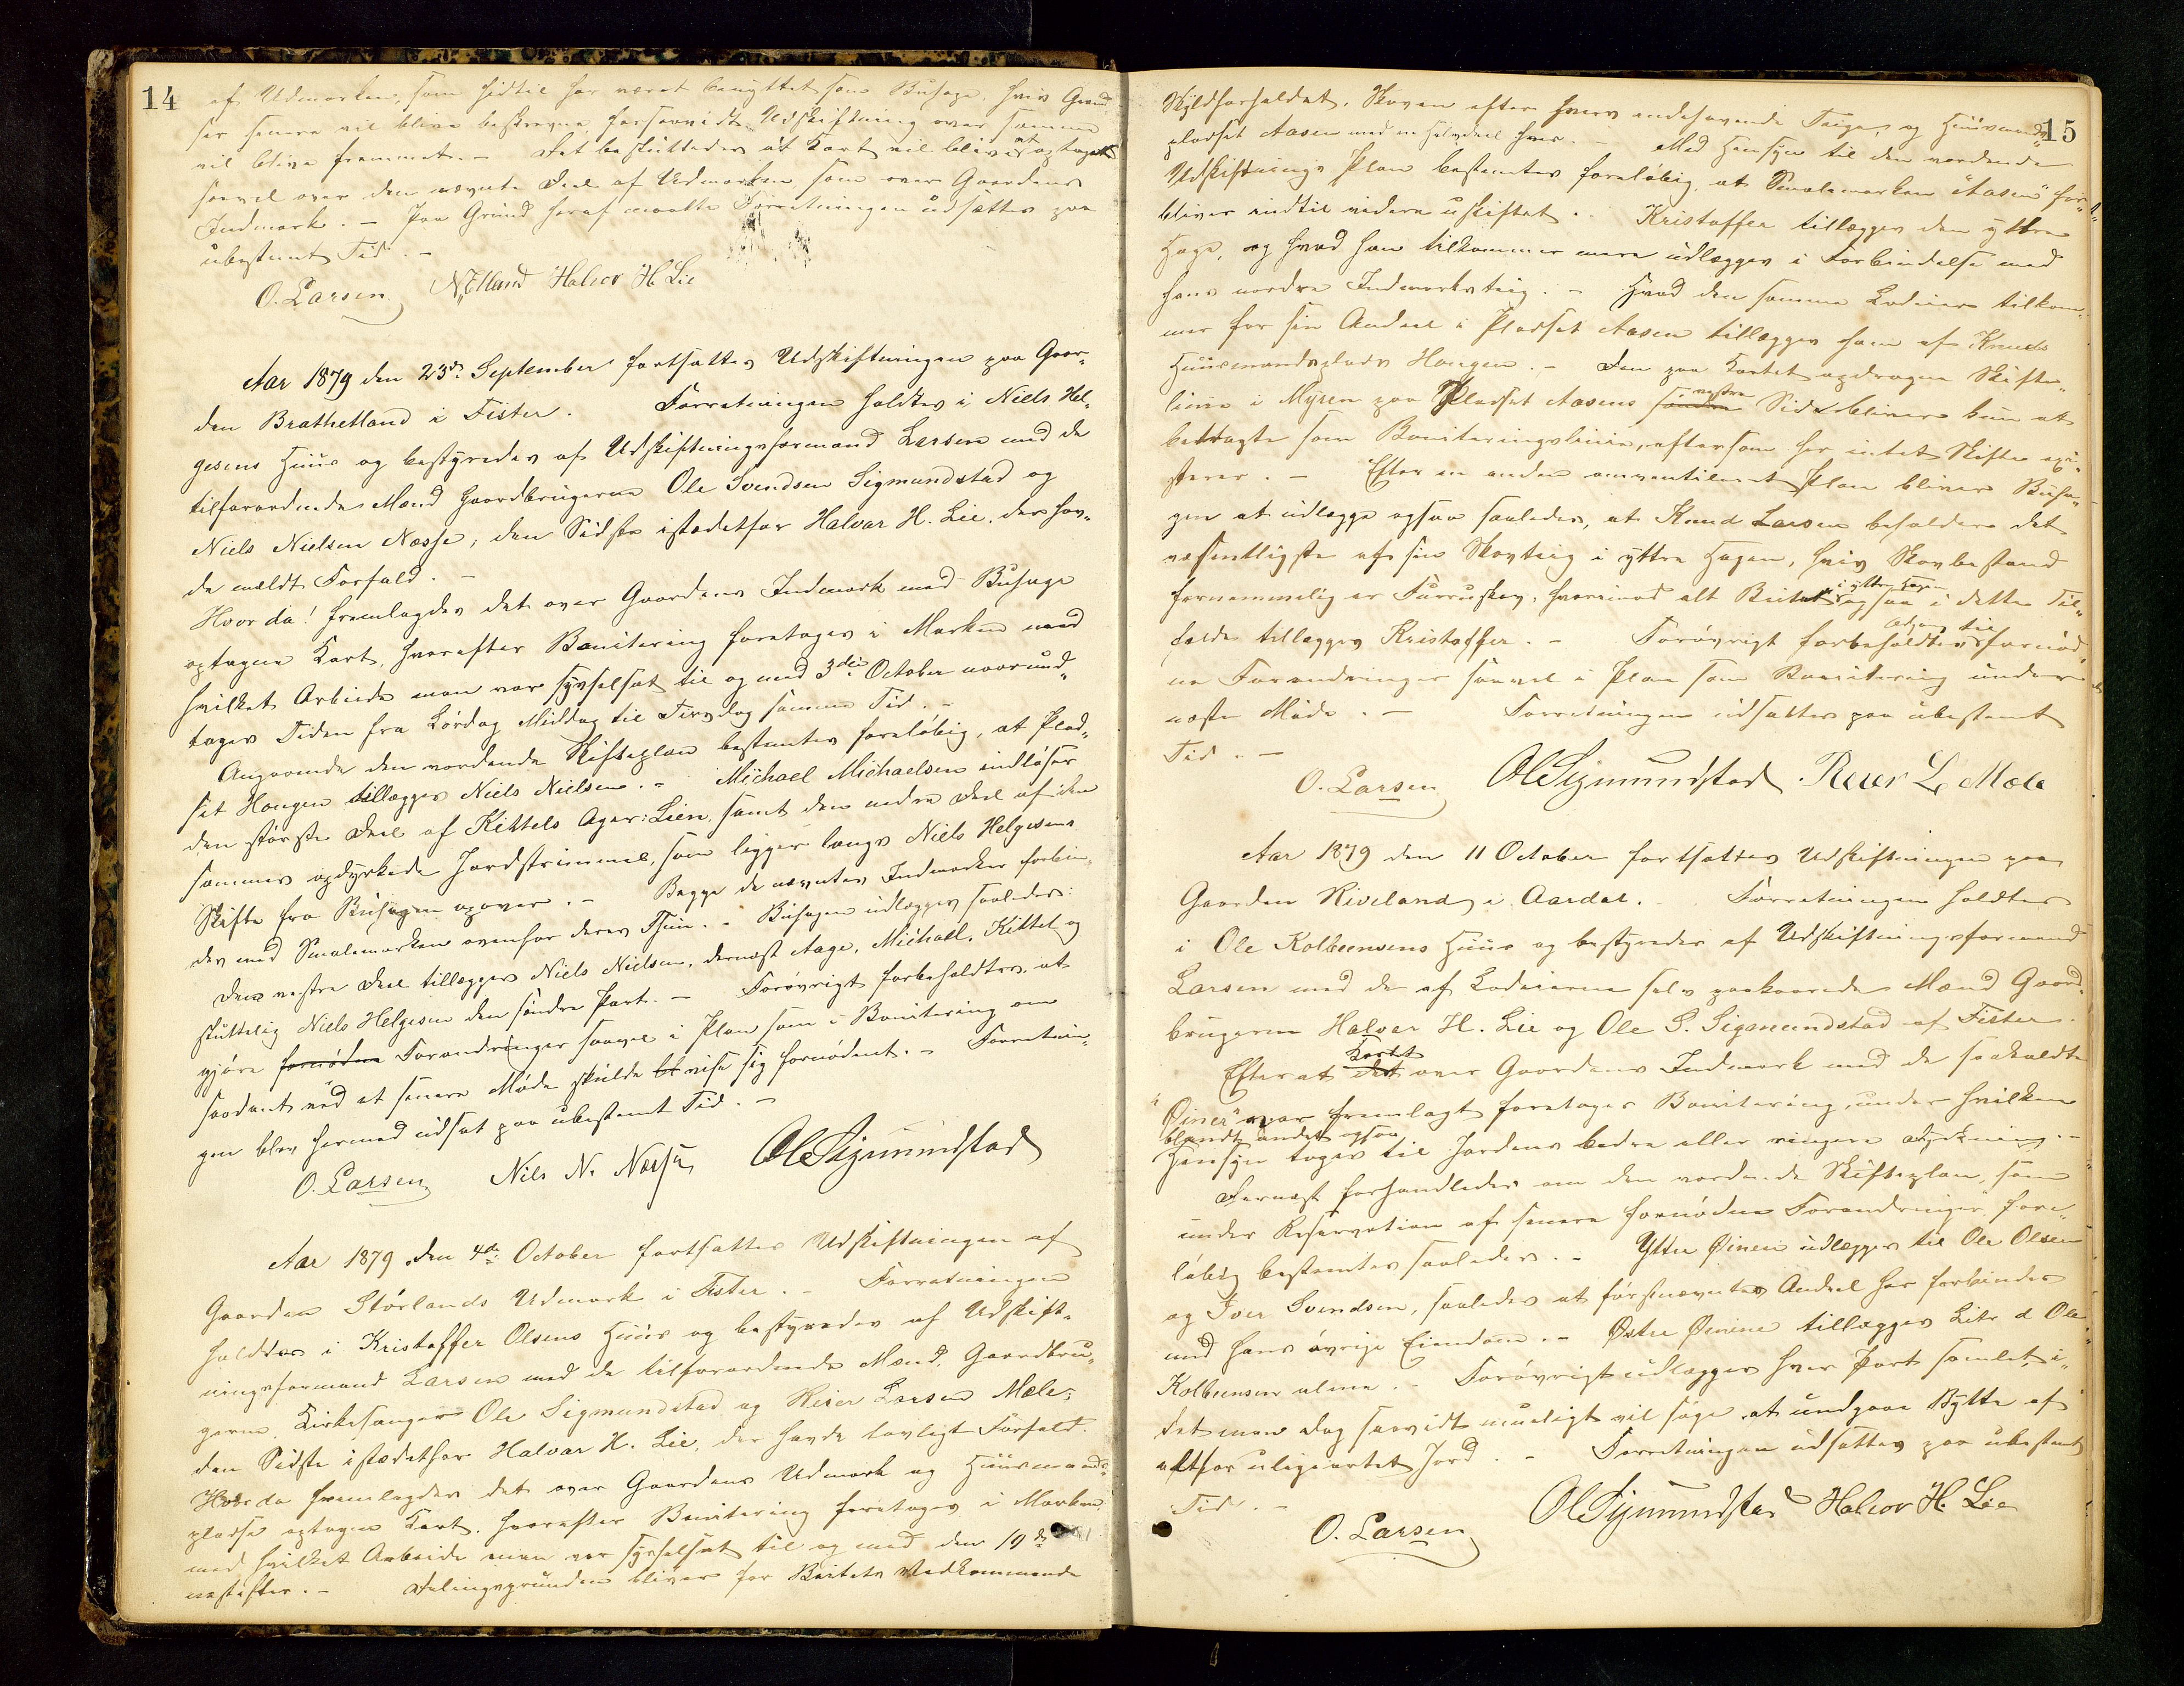 14
af Udmarken, som hidtil har været benyttet som Buhage, hvis Grænd-
ser senere vil blive beskrevne, forsaavidt Udskiftning over samme
vil blive fremmet. – Det besluttedes at Kart vil blive at optage
saavel over den nævnte Deel af Udmarken som over Gaardens
Indmark. – Paa Grund heraf maatte Forretningen udsættes paa
ubestemt Tid. –
O. Larsen N Elland Halvor H. Lie
Aar 1879 den 23de September fortsattes Udskiftningen paa Gaar-
den Brathetland i Fister. Forretningen holdtes i Niels Hel-
gesens Huus og bestyredes af Udskiftningsformand Larsen med de
tilforordnede Mænd Gaardbrugerne Ole Svendsen Sigmundstad og
Niels Nielsen Næsse, den Sidste istedetfor Halvar H. Lie, der hav-
de meldt Forfald. –
Hvor da! fremlagdes det over Gaardens Indmark med Buhage
optagne Kart, hvorefter Bonitering foretoges i Marken med
hvilket Arbeide man var sysselsat til og med 3die October naarund-
tages Tiden fra Lørdag Middag til Tirsdag samme Tid. –
Angaaende den vordende Skifteplan bestemtes foreløbig, at Plad-
set Haugen tillægges Niels Nielsen. – Michael Michaelsen indløser
den største Deel af Kittels Ager: Lien, samt den nedre Deel af den
sammes opdyrkede Jordstrimmel, som ligger langs Niels Helgesens
Skifte fra Buhagen opover. – Begge de nævntes Indmarker forbin-
des med Smalemarken ovenfor deres Tun. – Buhagen udlægges saaledes:
Den vestre Deel tillægges Niels Nielsen, dernæst Aage, Michael, Kittel og
sluttelig Niels Helgesen den søndre Part. – Forøvrigt forbeholdtes at
gjøre fornødne Forandringer saavel i Plan som i Bonitering om
saadant ved et senere Møde skulde bl vise sig fornødent. – Forretnin-
gen blev hermed udsat paa ubestemt Tid. –
O. Larsen Nils N. Næsse Ole Sigmundstad
Aar 1879 den 4de October fortsattes Udskiftningen af
Gaarden Størlands Udmark i Fister. – Forretningen
holdtes i Kristoffer Olsens Huus og bestyredes af Udskift-
ningsformand Larsen med de tilforordnede Mænd, Gaardbru-
gerne, Kirkesanger Ole Sigmundstad og Reier Larsen Mæle;
den Sidste istedetfor Halvar H. Lie, der havde lovligt Forfald.
Hvor da fremlagdes det over Gaardens Udmark og Huusmands-
pladse optagne Kart, hvorefter Bonitering foretoges i Marken,
med hvilket Arbeide man var sysselsat til og med den 10de
næstefter. – Delingsgrunden bliver for Beitets Vedkommende
15
Skyldforholdet, Skoven efter hvers endehavende Teige, og Huusmands-
pladset Aasen med en Halvdeel hver. – Med Hensyn til den vordende
Udskiftnings Plan bestemtes foreløbig, at Smalemarken "Aasen" for-
bliver indtil videre uskiftet. Kristoffer tillægges den yttre
Hage, og hvad han tilkommer mere udlægges i Forbindelse med
hans nordre Indmarksteig. – Hvad den samme Lodeier tilkom-
mer for sin Andeel i Pladset Aasen tillægges ham af Knuds
Huusmandsplads Haugen. – Den paa Kartet opdragne Skifte-
linie i Myren paa Pladset Aasens søndre vestre Side bliver kun at
betragte som Boniteringslinie, eftersom her intet Skifte exi-
sterer. – Efter en anden omventileret Plan bliver Buha-
gen at udlægge ogsaa saaledes, at Knud Larsen beholder det
væsentligste af sin Skovteig i yttre Hagen, hvis Skovbestand
fornemmelig er Furruskov, hvorimod alt Beitet i yttre Hagen ogsaa i dette Til-
fælde tillægges Kristoffer. – Forøvrigt forbeholdtes Adgang til fornød-
ne Forandringer saavel i Plan som Bonitering under
næste Møde. – Forretningen udsattes paa ubestemt
Tid. –
O. Larsen Ole Sigmundstad Reier L. Mæle
Aar 1879 den 11 October fortsattes Udskiftningen paa
Gaarden Riveland i Aardal. Forretningen holdtes
i Ole Kolbeensens Huus og bestyredes af Udskiftningsformand
Larsen med de af Lodeierne selv paakaarede Mænd Gaard-
brugerne Halvar H. Lie og Ole S. Sigmundstad af Fister.
Efterat det Kartet over Gaardens Indmark med de saakaldte
"Øiner" var fremlagt foretoges Bonitering, under hvilken
blandt andet ogsaa
Hensyn toges til Jordens bedre eller ringere Dyrkning. –
Dernæst forhandledes om den vordende Skifteplan, som
under Reservation af senere fornødne Forandringer, fore-
løbig bestemtes saaledes. – Yttre Øinene udlægges til Ole Olsen
og Iver Svendsen, saaledes at førstnævntes Andeel her forbindes
med hans øvrige Eiendom. – Østre Øinene tillægges Litr. d Ole
Kolbeensen alene. – Forøvrigt udlægges hver Part samlet, i-
det man dog saavidt mueligt vil søge at undgaae Bytte af
altfor uligeartet Jord. – Forretningen udsattes paa ubestemt
Tid. –
O. Larsen Ole Sigmundstad Halvor H. Lie